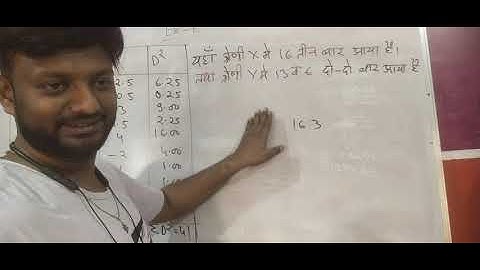 D²
यहाँ श्रेणी X मे 16 तीन बार आया है।
तथा श्रेणी Y मे 13 व 6 दो-दो बार आया है
2.5 6.25
0.5 0.25
3 9.00
.5 2.25
4 16.00
-2 4.00
1.00
16.3
ΣD²=41